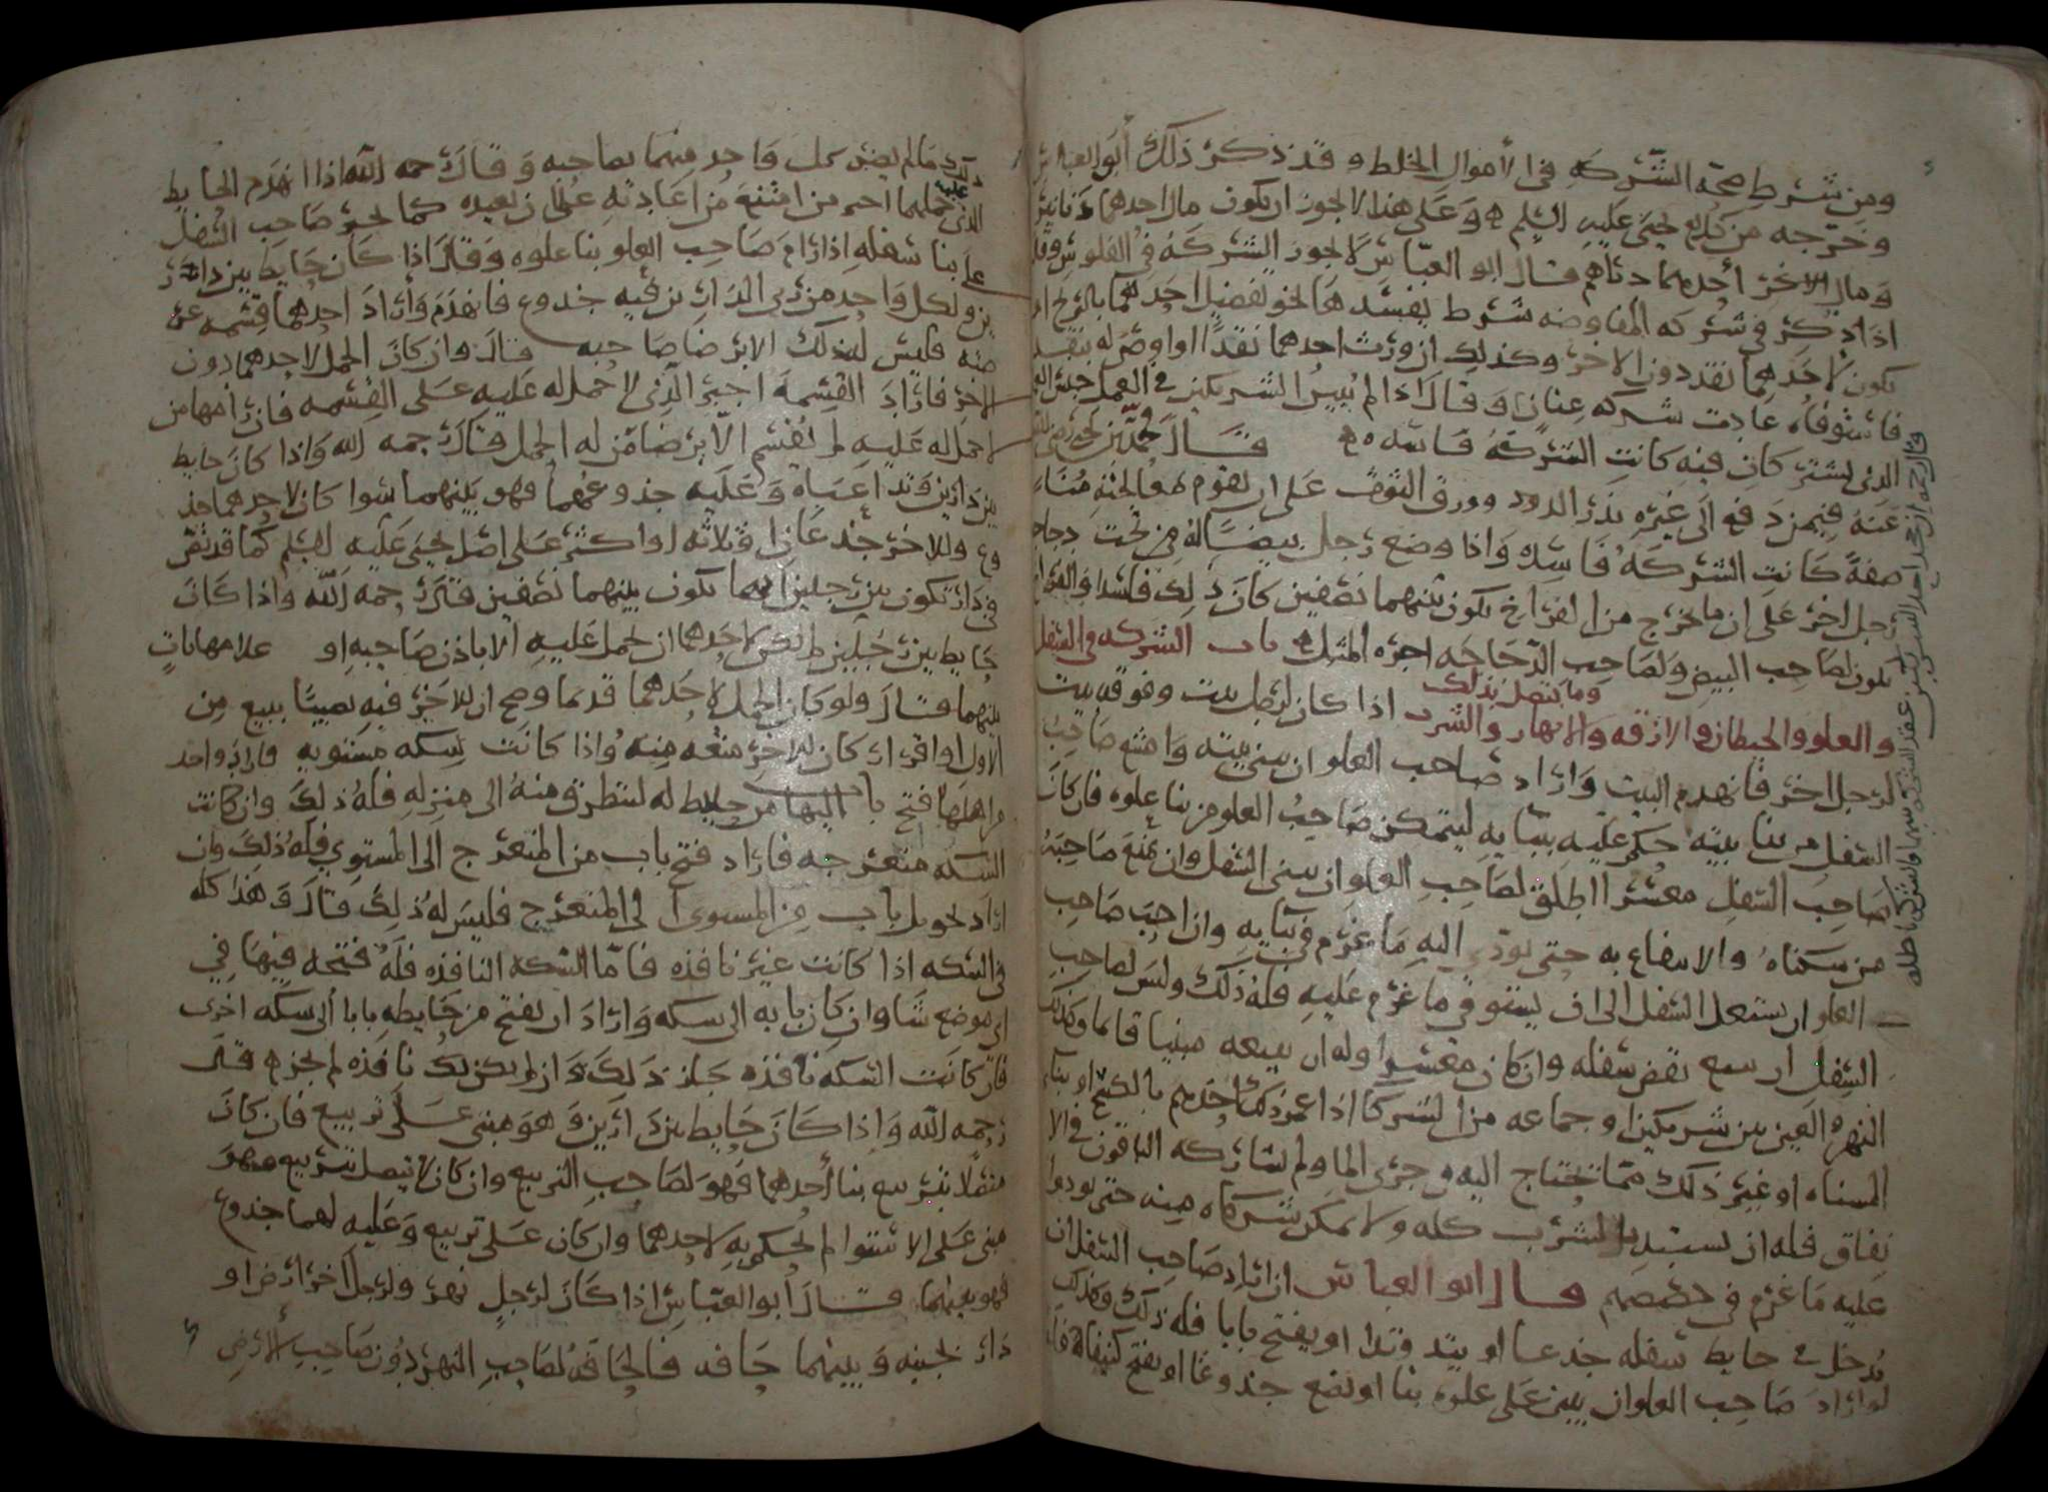 ومن شرط صحة الشركه في الأموال الخلط وقد ذكر ذلك أبو العباس
وخرجه من كلام يحيى عليه السلم وعلى هذا لا يجوز ان يكون مال احدهما دنانير
ومال الاخر دراهم قال ابو العباس لا يجوز الشركة في الفلوس وقال
اذا ذكر في شركه المفاوضه شرط يفسدها نحو تفضيل احدهما بالربح او
يكون لأحدهما نقد دون الاخر وكذلك ان ورث احدهما نقدًا او اوصي له بنقد
فاستوفاه عادت شركه عنان وقال اذا لم يبين الشريكين في العمل جنس
الذي يشتركان فيه كانت الشركة فاسده قال محمد بن يحيى رضي الله
عنه فيمن دفع الى غيره بذر الدود وورق التوت على ان يقوم
صفةً كانت الشركة فاسده واذا وضع رجل بيضا له من تحت دجاجه
رجل اخر على ان ما يخرج من الفراخ يكون بينهما نصفين كان ذلك فاسدا والفراخ
يكون لصاحب البيض ولصاحب الدجاجه اجره المثل باب الشركه في السفل
والعلو والحيطان والازقه والانهار والشرب وما يتصل بذلك اذا كان لرجل بيت وفوقه بيت
لرجل اخر فانهدم البيت واراد صاحب العلو ان يبني بيته وامتنع صاحب
السفل من بنا بيته حكم عليه ببنايه ليتمكن صاحب العلو من بنا علوه فان كان
صاحب السفل معسرا اطلق لصاحب العلو ان يبني السفل وان يمنع صاحبه
من سكناه والانتفاع به حتى يودي اليه ما غرم في بنايه وان احب صاحب
العلو ان يستعمل السفل الى ان يستوفي ما غرم عليه فله ذلك وليس لصاحب
السفل ان يبيع نقض سفله وان كان معسرا وله ان يبيعه مبنيا قائما وكذلك
النهر والعين بين شريكين او جماعه من الشركا اذا عمر ذلك احدهم بالكسح او بناء
المسناه او غير ذلك مما تحتاج اليه وجرى الما ولم يشاركه الباقون في الا
نفاق فله ان يستبد بالشرب كله ولا يمكن شركاه منه حتى يودوا
عليه ما غرم في حصصهم قال ابو العباس ان اراد صاحب السفل ان
يدخل في حايط سفله جذعا او يتد وتدا او يفتح بابا فله ذلك وكذلك
لو اراد صاحب العلو ان يبني على علوه بنا او يضع جذوعا او يفتح كنيفا فله
ذلك ما لم يضر كل واحد منهما بصاحبه وقال رحمه الله اذا انهدم الحايط
الذي عليه حملهما اجبر من امتنع من اعادته على ان يعيده كما يجبر صاحب السفل
على بنا سفله اذا رام صاحب العلو بنا علوه وقال اذا كان حايط بين دار
ين ولكل واحد من ربي الدارين فيه جذوع فانهدم واراد احدهما قسمه عر
صه فليس له ذلك الا برضا صاحبه قال وان كان الحمل لاحدهما دون
الاخر فاراد القسمه اجبر الذي لا حمل له عليه على القسمه فان رامها من
لا حمل له عليه لم يقسم الا برضا من له الحمل قال رحمه الله واذا كان حايط
بين دارين وتداعياه وعليه جذوعهما فهو بينهما سوا كان لاحدهما جذ
وع وللاخر جذعان او ثلاثه او اكثر على اصل يحيى عليه السلم كما قد نص
في دار تكون بين رجلين انها تكون بينهما نصفين قال رحمه الله واذا كان
حايط بين رجلين لم يكن لاحدهما ان يحمل عليه الا باذن صاحبه او علا مهاياةٍ
بينهما قال ولو كان الحمل لاحدهما قديما وصح ان للاخر فيه نصيبًا ببيع من
الاول او اقرار كان للاخر منعه منه واذا كانت سكه مستويه فاراد واحد
من اهلها فتح باب اليها من حايط له ليتطرق منه الى منزله فله ذلك وان كانت
السكه منعرجه فاراد فتح باب من المنعرج الى المستوي فله ذلك وان
اراد تحويل باب من المستوى الى المنعرج فليس له ذلك قال وهذا كله
في السكه اذا كانت غير نافذه فاما السكه النافذه فله فتحه فيها في
اي موضع شا وان كان بابه الى سكه واراد ان يفتح من حايطه بابا الى سكه اخرى
فان كانت السكه نافذه جاز ذلك وان لم يكن تلك نافذه لم يجز قال
رحمه الله واذا كان حايط بين دارين وهو مبني على تربيع فان كان
متصلًا بتربيع بنا أحدهما فهو لصاحب التربيع وان كان لا يتصل بتربيع وهو
مبني على الاستوا لم يحكم به لاحدهما وان كان على تربيع وعليه لهما جذوع
فهو بينهما قال أبو العباس اذا كان لرجل نهر ولرجل اخر ارض او
دار بجنبه وبينهما حافه فالحافه لصاحب النهر دون صاحب الأرض